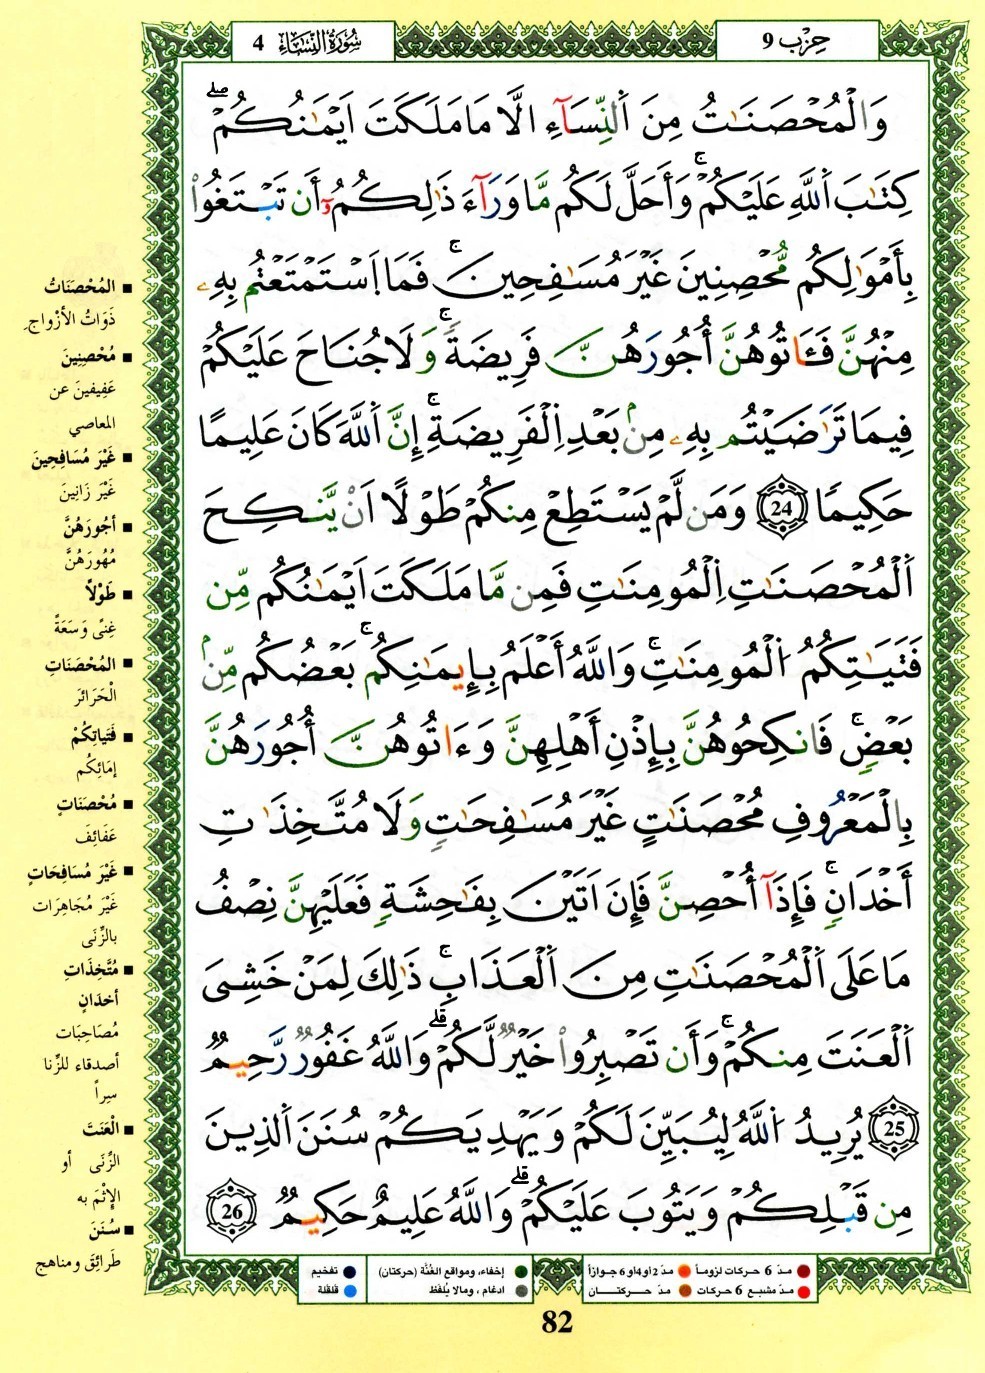 حِزْب 9
سُورَةُ النِّسَاءِ 4
وَالْمُحْصَنَٰتُ مِنَ اَ۬لنِّسَآءِ الَّا مَا مَلَكَتَ اَيْمَٰنُكُمْۖ
كِتَٰبَ اَ۬للَّهِ عَلَيْكُمْۚ وَأَحَلَّ لَكُم مَّا وَرَآءَ ذَٰلِكُمُۥٓ أَن تَبْتَغُواْ
بِأَمْوَٰلِكُم مُّحْصِنِينَ غَيْرَ مُسَٰفِحِينَۚ فَمَا اَ۪سْتَمْتَعْتُم بِهِۦ
مِنْهُنَّ فَـَٔاتُوهُنَّ أُجُورَهُنَّ فَرِيضَةًۚ وَلَا جُنَاحَ عَلَيْكُمْ
فِيمَا تَرَٰضَيْتُم بِهِۦ مِنۢ بَعْدِ اِ۬لْفَرِيضَةِۚ إِنَّ اَ۬للَّهَ كَانَ عَلِيمًا
حَكِيمًا 24 وَمَن لَّمْ يَسْتَطِعْ مِنكُمْ طَوْلًا اَنْ يَّنكِحَ
اَ۬لْمُحْصَنَٰتِ اِ۬لْمُومِنَٰتِ فَمِن مَّا مَلَكَتَ اَيْمَٰنُكُم مِّن
فَتَيَٰتِكُمُ اُ۬لْمُومِنَٰتِۚ وَاللَّهُ أَعْلَمُ بِإِيمَٰنِكُمۚ بَعْضُكُم مِّنۢ
بَعْضٖۚ فَانكِحُوهُنَّ بِإِذْنِ أَهْلِهِنَّ وَءَاتُوهُنَّ أُجُورَهُنَّ
بِالْمَعْرُوفِ مُحْصَنَٰتٍ غَيْرَ مُسَٰفِحَٰتٖ وَلَا مُتَّخِذَٰتِ
أَخْدَانٖۚ فَإِذَآ أُحْصِنَّ فَإِنَ اَتَيْنَ بِفَٰحِشَةٖ فَعَلَيْهِنَّ نِصْفُ
مَا عَلَى اَ۬لْمُحْصَنَٰتِ مِنَ اَ۬لْعَذَابِۚ ذَٰلِكَ لِمَنْ خَشِيَ
اَ۬لْعَنَتَ مِنكُمْۚ وَأَن تَصْبِرُواْ خَيْرٞ لَّكُمْۗ وَاللَّهُ غَفُورٞ رَّحِيمٞ
25 يُرِيدُ اُ۬للَّهُ لِيُبَيِّنَ لَكُمْ وَيَهْدِيَكُمْ سُنَنَ اَ۬لذِينَ
مِن قَبْلِكُمْ وَيَتُوبَ عَلَيْكُمْۗ وَاللَّهُ عَلِيمٌ حَكِيمٞ 26
■ المُحْصَنَاتُ
ذَوَاتُ الأَزْوَاجِ
■ مُحْصِنِينَ
عَفِيفِينَ عن
المعاصي
■ غَيْرَ مُسَافِحِينَ
غَيْرَ زَانِينَ
■ أُجُورَهُنَّ
مُهُورَهُنَّ
■ طَوْلاً
غِنًى وَسَعَةً
■ المُحْصَنَاتِ
الْحَرَائرَ
■ فَتَيَاتِكُمْ
إمَائِكُم
■ مُحْصَنَاتٍ
عَفَائِفَ
■ غَيْرَ مُسَافِحَاتٍ
غَيْرَ مُجَاهِرَات
بالزِّنَى
■ مُتَّخِذَاتِ
أخدَانٍ
مُصَاحِبَات
أصدقاء للزِّنا
سِراً
■ الْعَنَتَ
الزِّنَى أو
الإِثْمَ به
■ سُنَنَ
طَرائِقَ ومناهج
مدّ 6 حركات لزوماً ● مدّ 2 أو4 أو6 جوازاً ● إخفاء، ومواقع الغُنَّة (حركتان) ● تفخيم
مدّ مشبع 6 حركات ● مدّ حركتان ● ادغام، ومالا يُلفَظ ● قلقلة
82